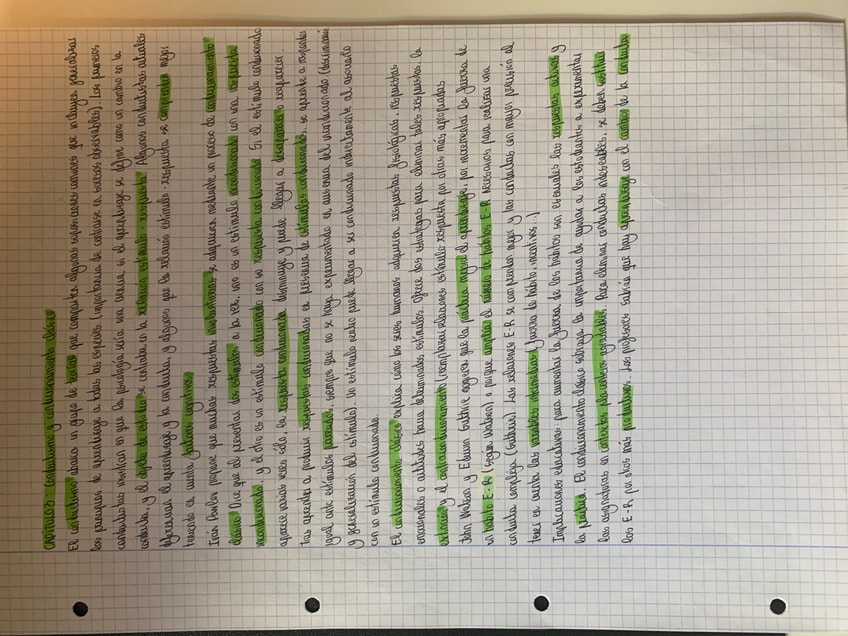 CAPÍTULO 3: Conductismo y condicionamiento clásico
El conductismo abarca un grupo de teorías que comparten algunas suposiciones comunes que incluyen generalizar
los principios de aprendizaje a todas las especies, importancia de centrarse en sucesos observables). Los primeros
conductistas insistían en que la psicología sería una ciencia si el aprendizaje se define como un cambio en la
conducta, y el objeto de estudio se centraba en la relación estímulo - respuesta. Algunos conductistas actuales
diferencian el aprendizaje y la conducta, y algunos que la relación estímulo-respuesta se comprenden mejor
teniendo en cuenta factores cognitivos.
Iván Pavlov propone que muchas respuestas involuntarias se adquieren mediante un proceso de condicionamiento
clásico. Dice que al presentar dos estímulos a la vez, uno es un estímulo incondicionado con una respuesta
incondicionada, y el otro es un estímulo condicionado con su respuesta condicionada. Si el estímulo condicionado
aparece varias veces sólo, la respuesta condicionada disminuye y puede llegar a desaparecer o reaparecer.
Tras aprender a producir respuestas condicionadas en presencia de estímulos condicionados, se aprende a responder
igual ante estímulos parecidos, siempre que no se haya experimentado en ausencia del incondicionado (
y generalización del estímulo). Un estímulo neutro puede llegar a ser condicionado indirectamente al asociarlo
con un estímulo condicionado.
El condicionamiento clásico explica cómo los seres humanos adquieren respuestas fisiológicas, respuestas
emocionales o actitudes hacia determinados estímulos. Ofrece dos estrategias para eliminar tales respuestas: la
extinción y el contracondicionamiento (reemplazar relaciones estímulo respuesta por otras más apropiadas.
John Watson y Edwin Guthrie sugieren que la práctica mejora el aprendizaje, por incrementar la fuerza de
un hábito E-R (según Watson) o porque amplían el número de hábitos E-R necesarios para realizar una
conducta compleja (Guthrie). Las relaciones E-R se comprenden mejor y las conductas con mayor precisión al
tener en cuenta las variables individuales (fuerza de hábito, incentivos..)
Implicaciones educativas: para aumentar la fuerza de los hábitos son esenciales las respuestas activas y
la práctica. El condicionamiento clásico subraya la importancia de ayudar a los estudiantes a experimentar
las asignaturas en contextos placenteros agradables. Para eliminar conductas indeseables, se deben sustituir
los E-R por otros más productivos. Los profesores sabrán que hay aprendizaje en el cambio de la conducta